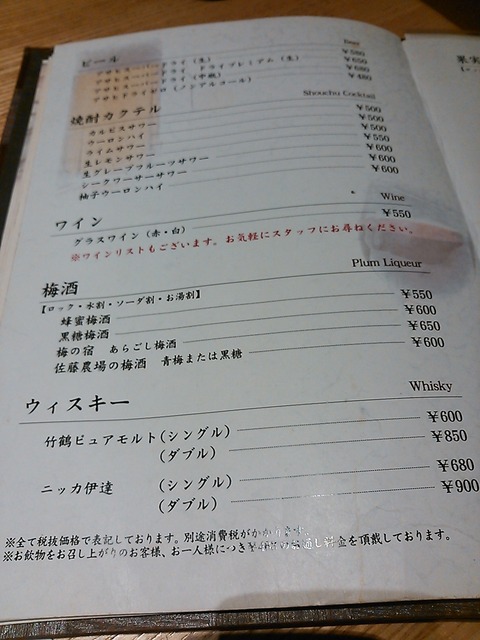 ビール Beer
アサヒスーパードライ（生） ¥580
アサヒスーパードライ ドライプレミアム（生） ¥650
アサヒスーパードライ（中瓶） ¥680
アサヒドライゼロ（ノンアルコール） ¥480
焼酎カクテル Shouchu Cocktail
カルピスサワー ¥500
ウーロンハイ ¥500
ライムサワー ¥500
生レモンサワー ¥550
生グレープフルーツサワー ¥600
シークワーサーサワー ¥600
柚子ウーロンハイ ¥600
ワイン Wine
グラスワイン（赤・白） ¥550
※ワインリストもございます。お気軽にスタッフにお尋ねください。
梅酒 Plum Liqueur
【ロック・水割・ソーダ割・お湯割】
蜂蜜梅酒 ¥550
黒糖梅酒 ¥600
梅の宿 あらごし梅酒 ¥650
佐藤農場の梅酒 青梅または黒糖 ¥600
ウィスキー Whisky
竹鶴ピュアモルト（シングル） ¥600
（ダブル） ¥850
ニッカ伊達 （シングル） ¥680
（ダブル） ¥900
※全て税抜価格で表記しております。別途消費税がかかります。
※お飲物をお召し上がりのお客様、お一人様につき お通し料金を頂戴しております。
果実